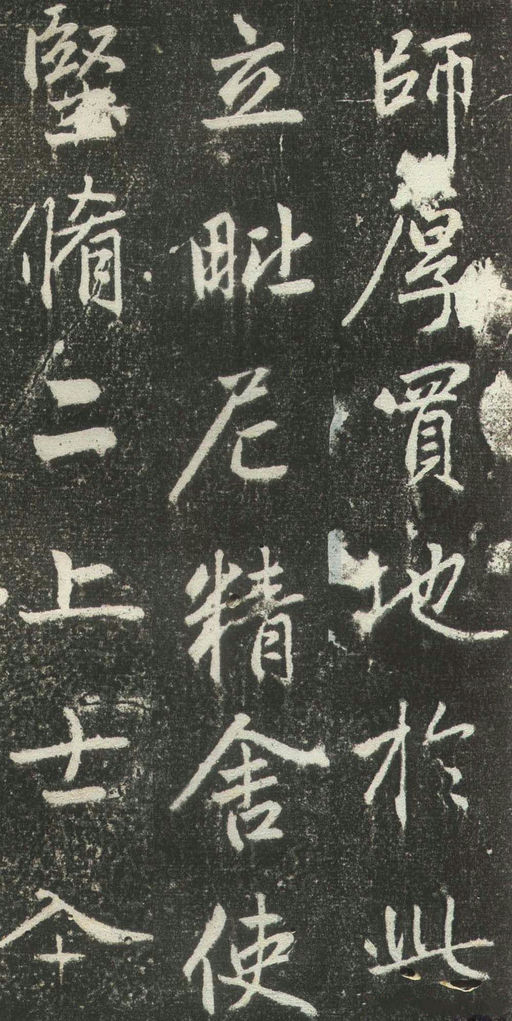 師厚買地於此
立毗尼精舍使
堅脩二上士